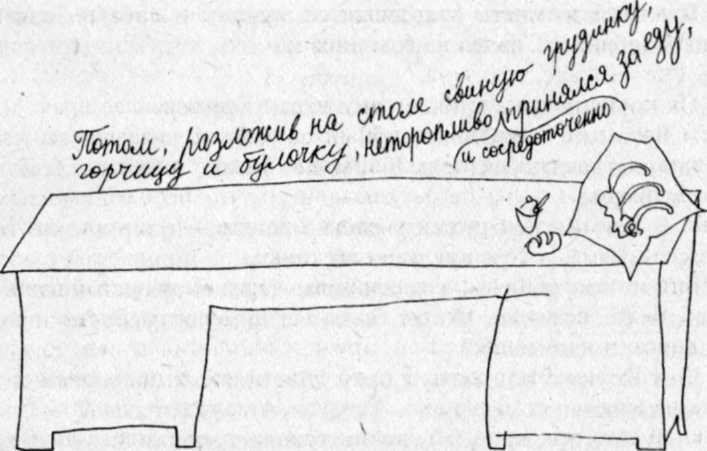 Потом, разложив на столе свиную грудинку,
горчицу и булочку, неторопливо принялся за еду,
и сосредоточенно